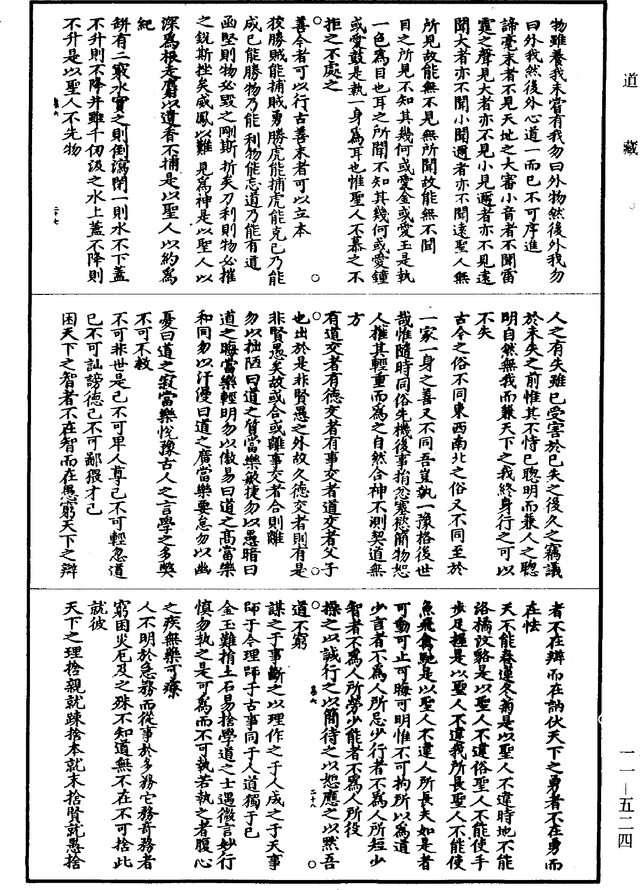 道藏
物雖養我未嘗有我勿曰外物然後外我勿
曰外我然後外心道一而已不可序進
諦毫末者不見天地之大審小音者不聞雷
霆之聲見大者亦不見小見邇者亦不見遠
聞大者亦不聞小聞邇者亦不聞遠聖人無
所見故能無不見無所聞故能無不聞
目之所見不知其幾何或愛金或愛玉是執
一色為目也耳之所聞不知其幾何或愛鐘
或愛鼓是執一身為耳也惟聖人不慕之不
拒之不處之
善今者可以行古善末者可以立本
狡勝賊能捕賊勇勝虎能捕虎能克己乃能
成己能勝物乃能利物能忘道乃能有道
函堅則物必毀之剛斯折矣刀利則物必摧
之銳斯挫矣威鳳以難見為神是以聖人以
深為根走麝以遺香不捕是以聖人以約為
紀
缾有二竅水實之則倒瀉閉一則水不下蓋
不升則不降井雖千仞汲之水上蓋不降則
不升是以聖人不先物
人之有失雖已受害於已失之後久之竊議
於未失之前惟其不恃己聰明而兼人之聰
明自然無我而兼天下之我終身行之可以
不失
古今之俗不同東西南北之俗又不同至於
一家一身之善又不同吾豈執一豫格後世
哉惟隨時同俗先機後事捐忿塞慾簡物恕
人權其輕重而為之自然合神不測契道無
方
有道交者有德交者有事交者道交者父子
也出於是非賢愚之外故久德交者則有是
非賢愚矣故或合或離事交者合則離
勿以拙陋曰道之質當樂敏捷勿以愚暗曰
道之晦當樂輕明勿以傲易曰道之高當樂
和同勿以汗漫曰道之廣當樂要急勿以幽
憂曰道之寂當樂悅豫古人之言學之多獘
不可不救
不可非世是己不可卑人尊己不可輕忽道
己不可訕謗德己不可鄙猥才己
困天下之智者不在智而在愚窮天下之辯
者不在辯而在訥伏天下之勇者不在勇而
在怯
天不能春蓮冬菊是以聖人不違時地不能
洛橘汶貉是以聖人不違俗聖人不能使手
步足握是以聖人不違我所長聖人不能使
魚飛禽馳是以聖人不違人所長夫如是者
可動可止可晦可明惟不可拘所以為道
少言者不為人所忌少行者不為人所短少
智者不為人所勞少能者不為人所役
操之以誠行之以簡待之以恕應之以默吾
道不窮
謀之于事斷之以理作之于人成之于天事
師于今理師于古事同于人道獨于己
金玉難捐土石易捨學道之士遇微言妙行
慎勿執之是可為而不可執若執之者腹心
之疾無藥可療
人不明於急務而從事於多務它務奇務者
窮困災厄及之殊不知道無不在不可捨此
就彼
天下之理捨親就踈捨本就末捨賢就愚捨
一一-五二四